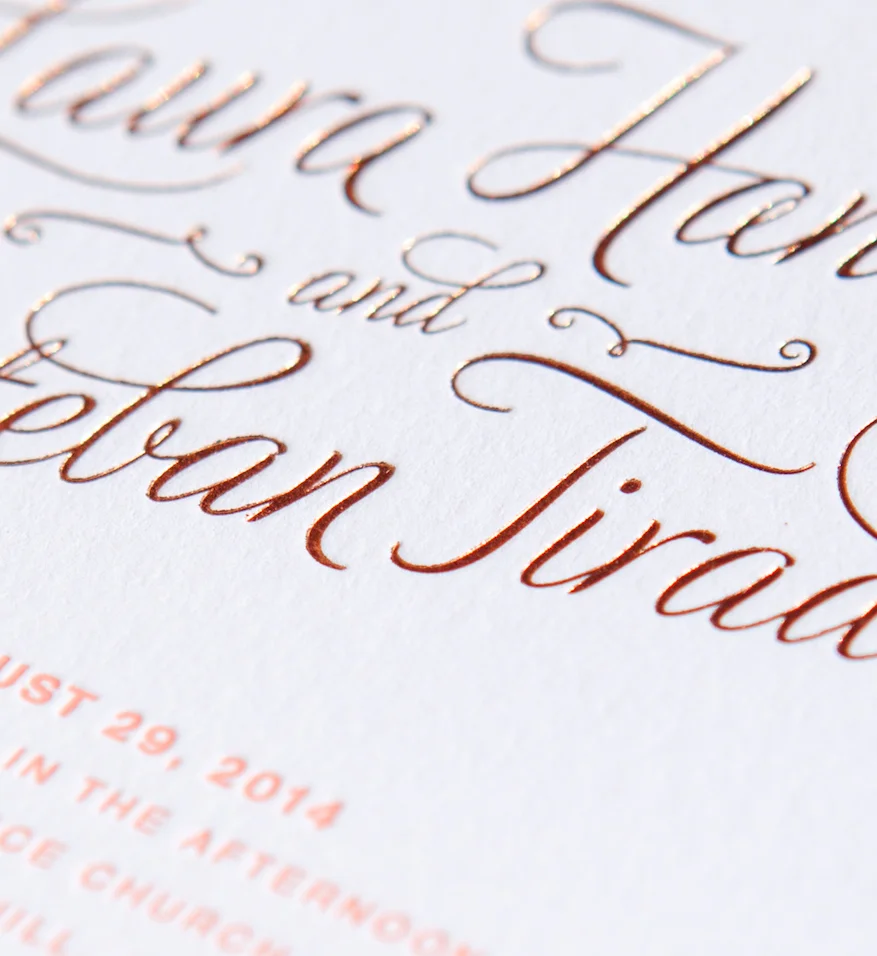 Laura Han
and
teban Tirad
UST 29, 2014
IN THE AFTERNOON
CE CHURCH
HILL